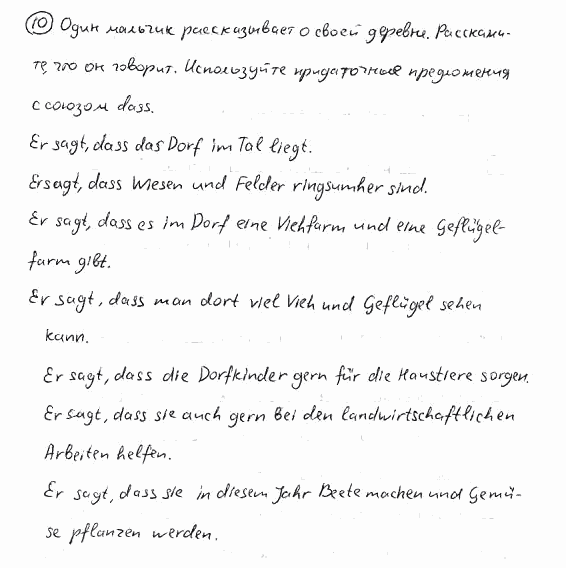 ⑩ Один мальчик рассказывает о своей деревне. Расскажи-
те, что он говорит. Используйте придаточные предложения
с союзом dass.
Er sagt, dass das Dorf im Tal liegt.
Er sagt, dass Wiesen und Felder ringsumher sind.
Er sagt, dass es im Dorf eine Viehfarm und eine Geflügel-
farm gibt.
Er sagt, dass man dort viel Vieh und Geflügel sehen
kann.
Er sagt, dass die Dorfkinder gern für die Haustiere sorgen.
Er sagt, dass sie auch gern bei den landwirtschaftlichen
Arbeiten helfen.
Er sagt, dass sie in diesem Jahr Beete machen und Gemü-
se pflanzen werden.